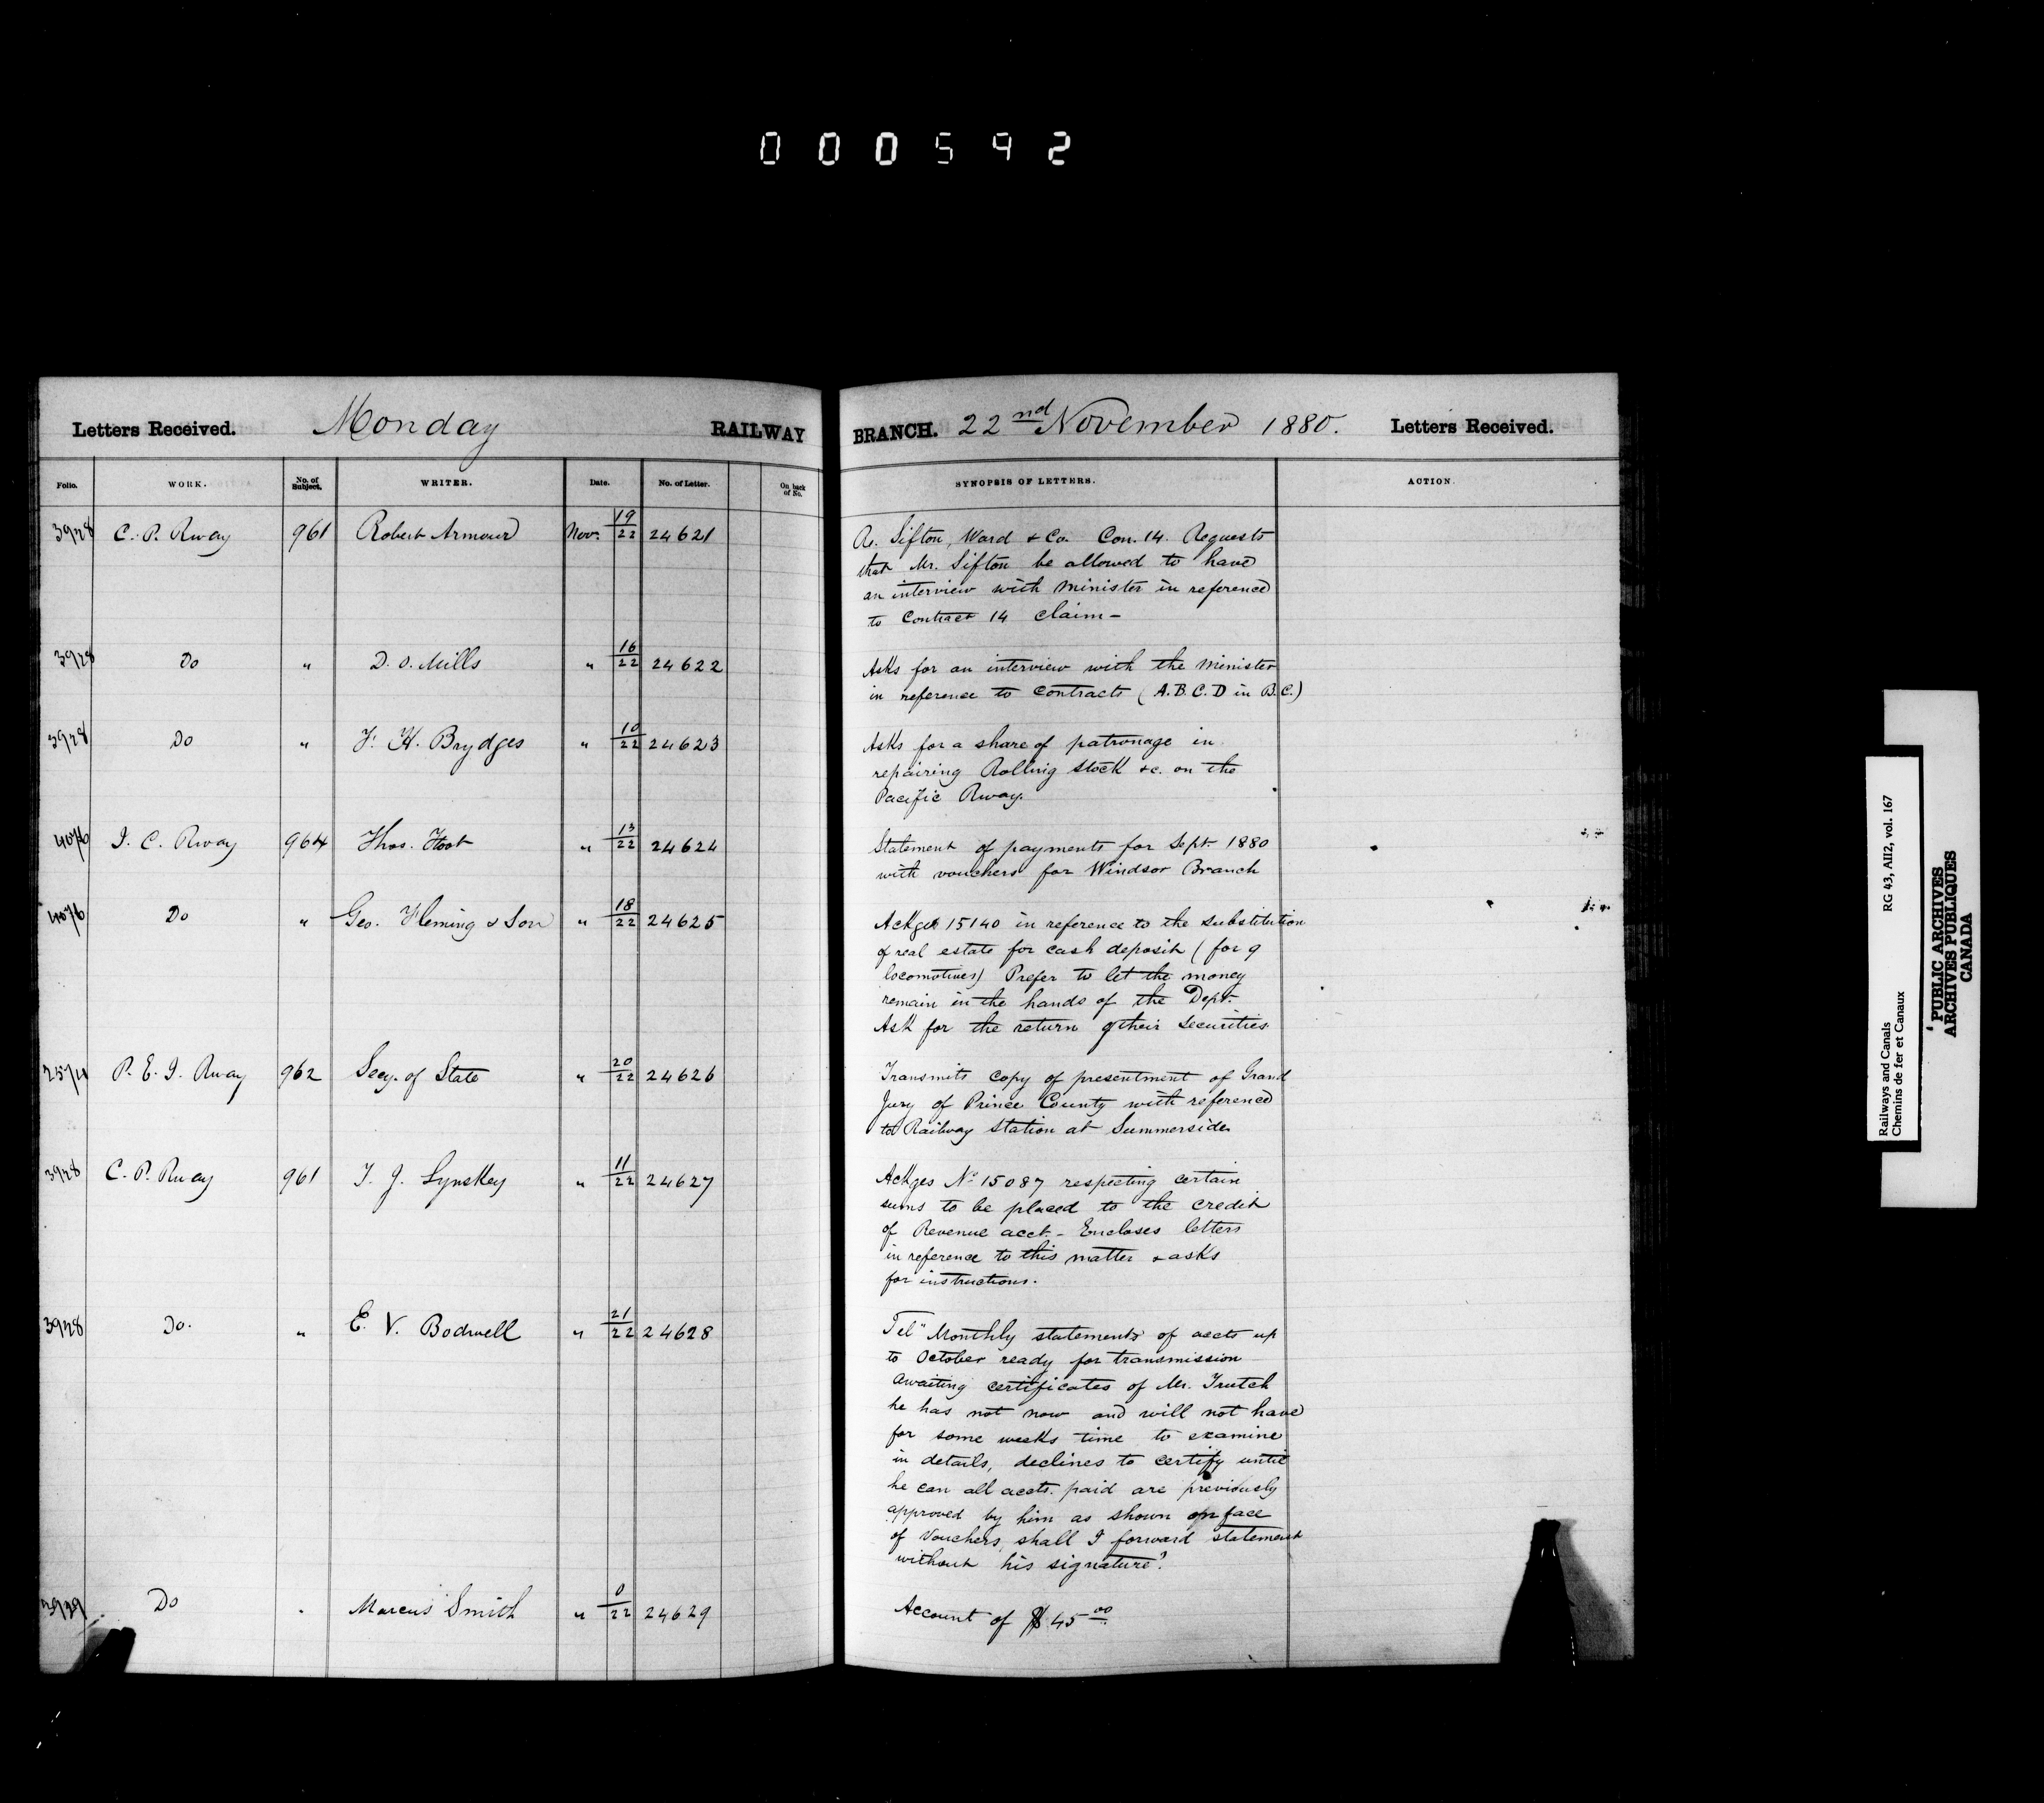 000592
Letters Received. Monday RAILWAY BRANCH. 22nd November 1880. Letters Received.
Folio. WORK. No. of Subject. WRITER. Date. No. of Letter. On back of No. SYNOPSIS OF LETTERS. ACTION.
3928 C. P. Rway 961 Robert Armour Nov. 19/22 24621 Re. Sifton, Ward & Co. Con. 14. Requests
that Mr. Sifton be allowed to have
an interview with Minister in reference
to Contract 14 claim -
3928 Do " D. O. Mills " 16/22 24622 Asks for an interview with the Minister
in reference to contracts (A.B.C.D in B.C.)
3928 Do " F. H. Brydges " 10/22 24623 Asks for a share of patronage in
repairing Rolling stock &c. on the
Pacific Rway.
4076 I. C. Rway 964 Thos. Foot " 13/22 24624 Statement of payments for Sept. 1880
with vouchers for Windsor Branch
4076 Do " Geo. Fleming & Son " 18/22 24625 Ackges 15140 in reference to the substitution
of real estate for cash deposit (for 9
locomotives) Prefer to let the money
remain in the hands of the Dept.
Ask for the return of their securities.
P. E. I. Rway 962 Secy. of State " 20/22 24626 Transmits copy of presentment of Grand
Jury of Prince County with reference
to Railway station at Summerside
3928 C. P. Rway 961 T. J. Lynskey " 11/22 24627 Ackges No 15087 respecting certain
sums to be placed to the credit
of Revenue acct. - Encloses letters
in reference to this matter & asks
for instructions.
3928 Do. " E. V. Bodwell " 21/22 24628 Tel" Monthly statements of accts up
to October ready for transmission
awaiting certificates of Mr. Trutch
he has not now and will not have
for some weeks time to examine
in details, declines to certify until
he can all accts. paid are previously
approved by him as shown on face
of Vouchers, shall I forward statement
without his signature?
3939 Do " Marcus Smith " 0/22 24629 Account of $45.00
Railways and Canals RG 43, AII2, vol. 167
Chemins de fer et Canaux
PUBLIC ARCHIVES
ARCHIVES PUBLIQUES
CANADA